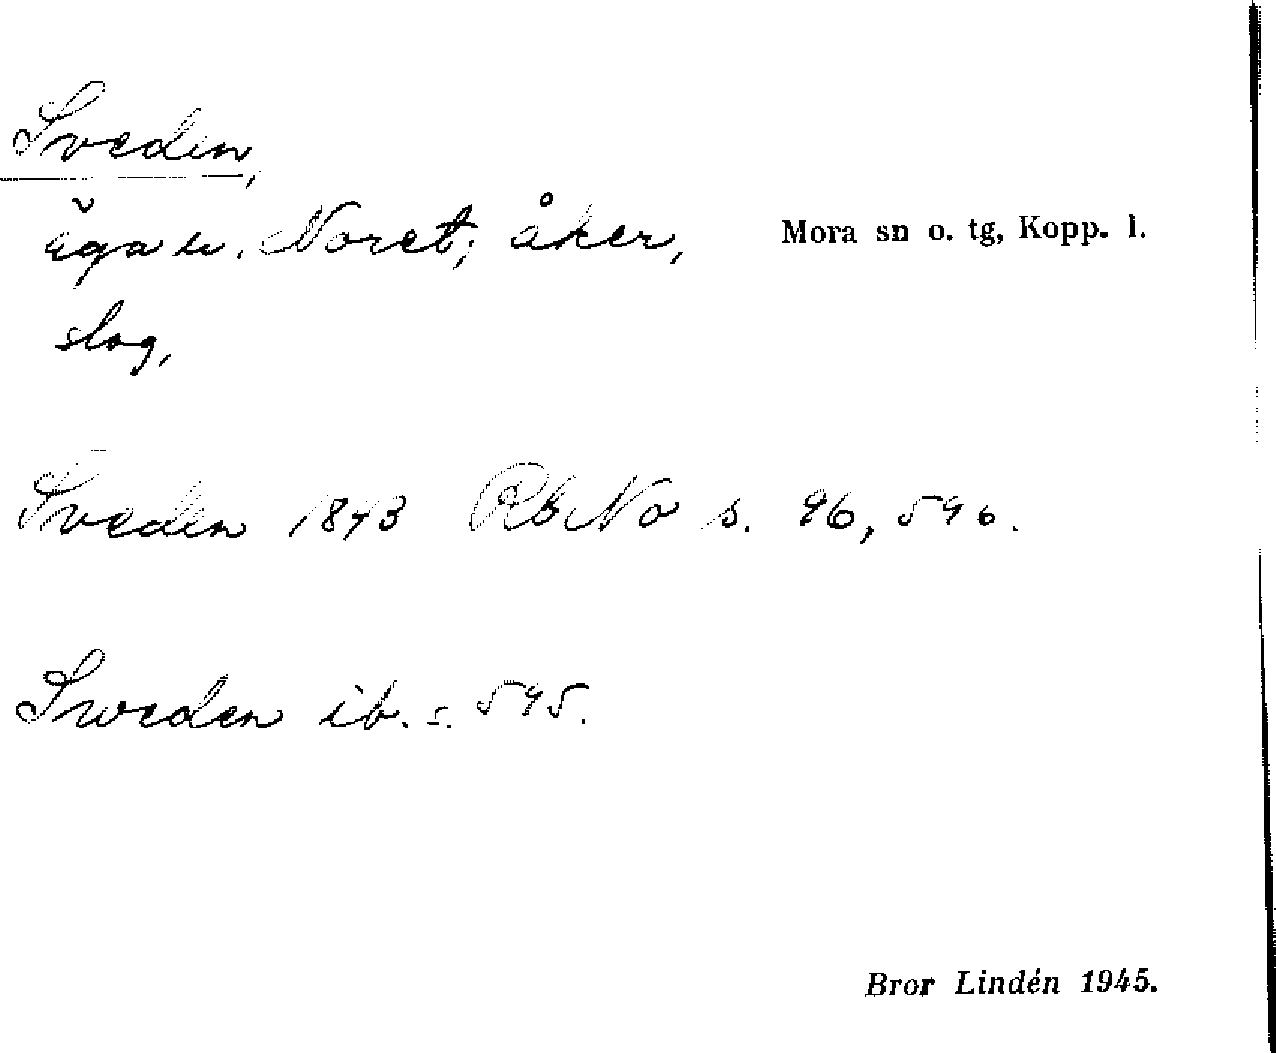 Sveden,
äga u. Noret; åker,
Mora sn o. tg, Kopp. l.
slog,
Sveden 1843 Rb No s. 96, 596.
Sweden ib. s. 595.
Bror Lindén 1945.